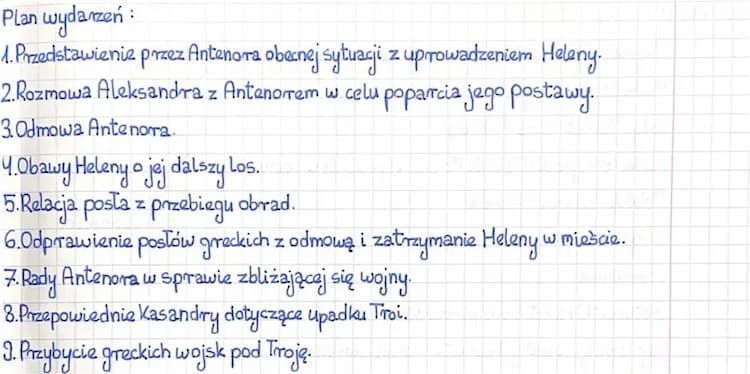 Plan wydarzeń:
1. Przedstawienie przez Antenora obecnej sytuacji z uprowadzeniem Heleny.
2. Rozmowa Aleksandra z Antenorem w celu poparcia jego postawy.
3. Odmowa Antenora.
4. Obawy Heleny o jej dalszy los.
5. Relacja posła z przebiegu obrad.
6. Odprawienie posłów greckich z odmową i zatrzymanie Heleny w mieście.
7. Rady Antenora w sprawie zbliżającej się wojny.
8. Przepowiednie Kasandry dotyczące upadku Troi.
9. Przybycie greckich wojsk pod Troję.